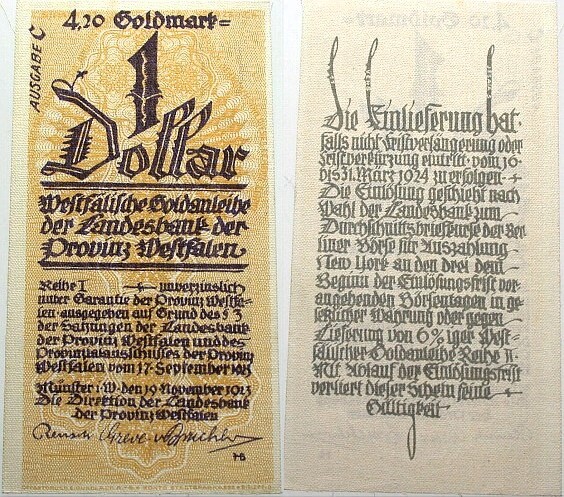 4,20 Goldmark =
AUSGABE C
1
Dollar
Westfälische Goldanleihe
der Landesbank der
Provinz Westfalen
Reihe I unverzinslich
unter Garantie der Provinz Westfa-
len ausgegeben auf Grund des § 3
der Satzungen der Landesbank
der Provinz Westfalen und des
Provinzialausschusses der Provinz
Westfalen vom 17. September 1923
Münster i. W. den 19. November 1923
Die Direktion der Landesbank
der Provinz Westfalen
HB
Die Einlieferung hat
falls nicht Fristverlängerung oder
Fristverkürzung eintritt vom 10.
bis 31. März 1924 zu erfolgen
Die Einlösung geschieht nach
Wahl der Landesbank zum
Durchschnittsbriefkurse der Ber-
liner Börse für Auszahlung
New York an den drei dem
Beginn der Einlösungsfrist vor-
angehenden Börsentagen in ge-
setzlicher Währung oder gegen
Lieferung von 6%iger West-
fälischer Goldanleihe Reihe II.
Mit Ablauf der Einlösungsfrist
verliert dieser Schein seine
Gültigkeit